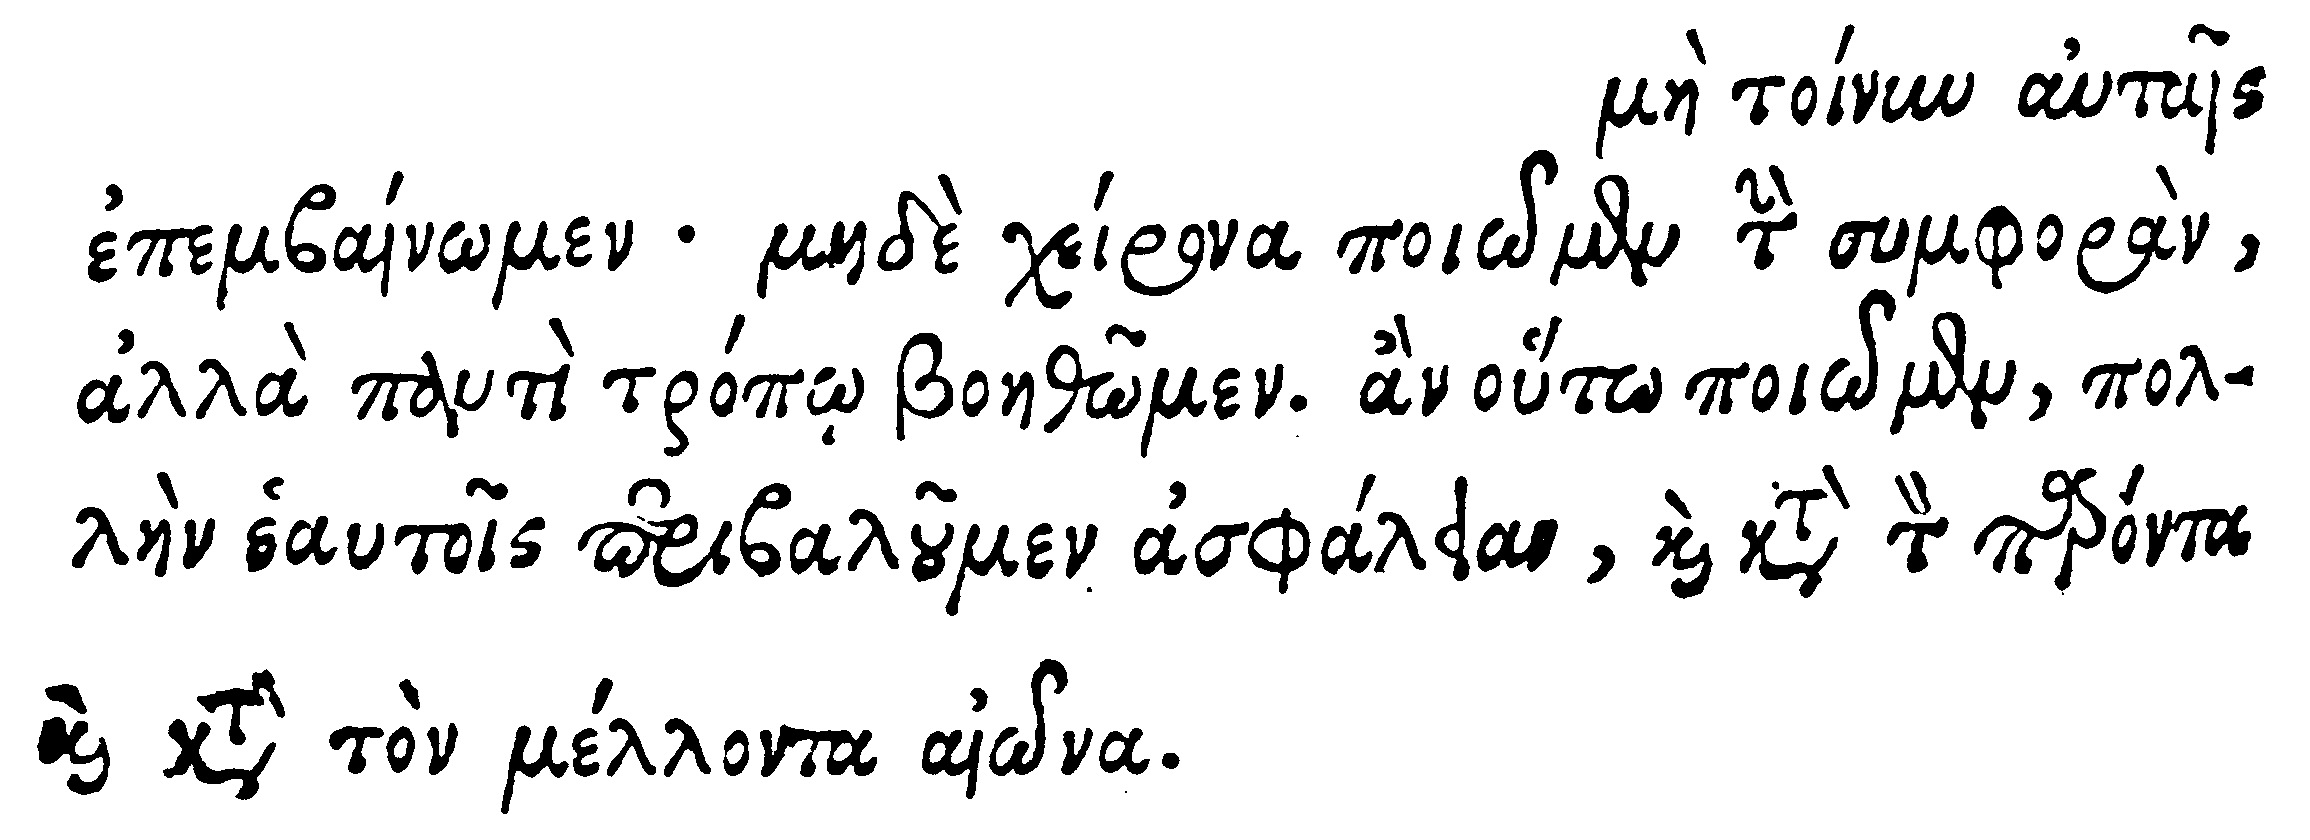 μὴ τοίνυν αὐταῖς
ἐπεμβαίνωμεν· μηδὲ χείρονα ποιῶμεν τὴν συμφορὰν,
ἀλλὰ παντὶ τρόπῳ βοηθῶμεν. ἂν οὕτω ποιῶμεν, πολ-
λὴν ἑαυτοῖς περιβαλοῦμεν ἀσφάλειαν, καὶ κατὰ τὸν παρόντα
καὶ κατὰ τὸν μέλλοντα αἰῶνα.